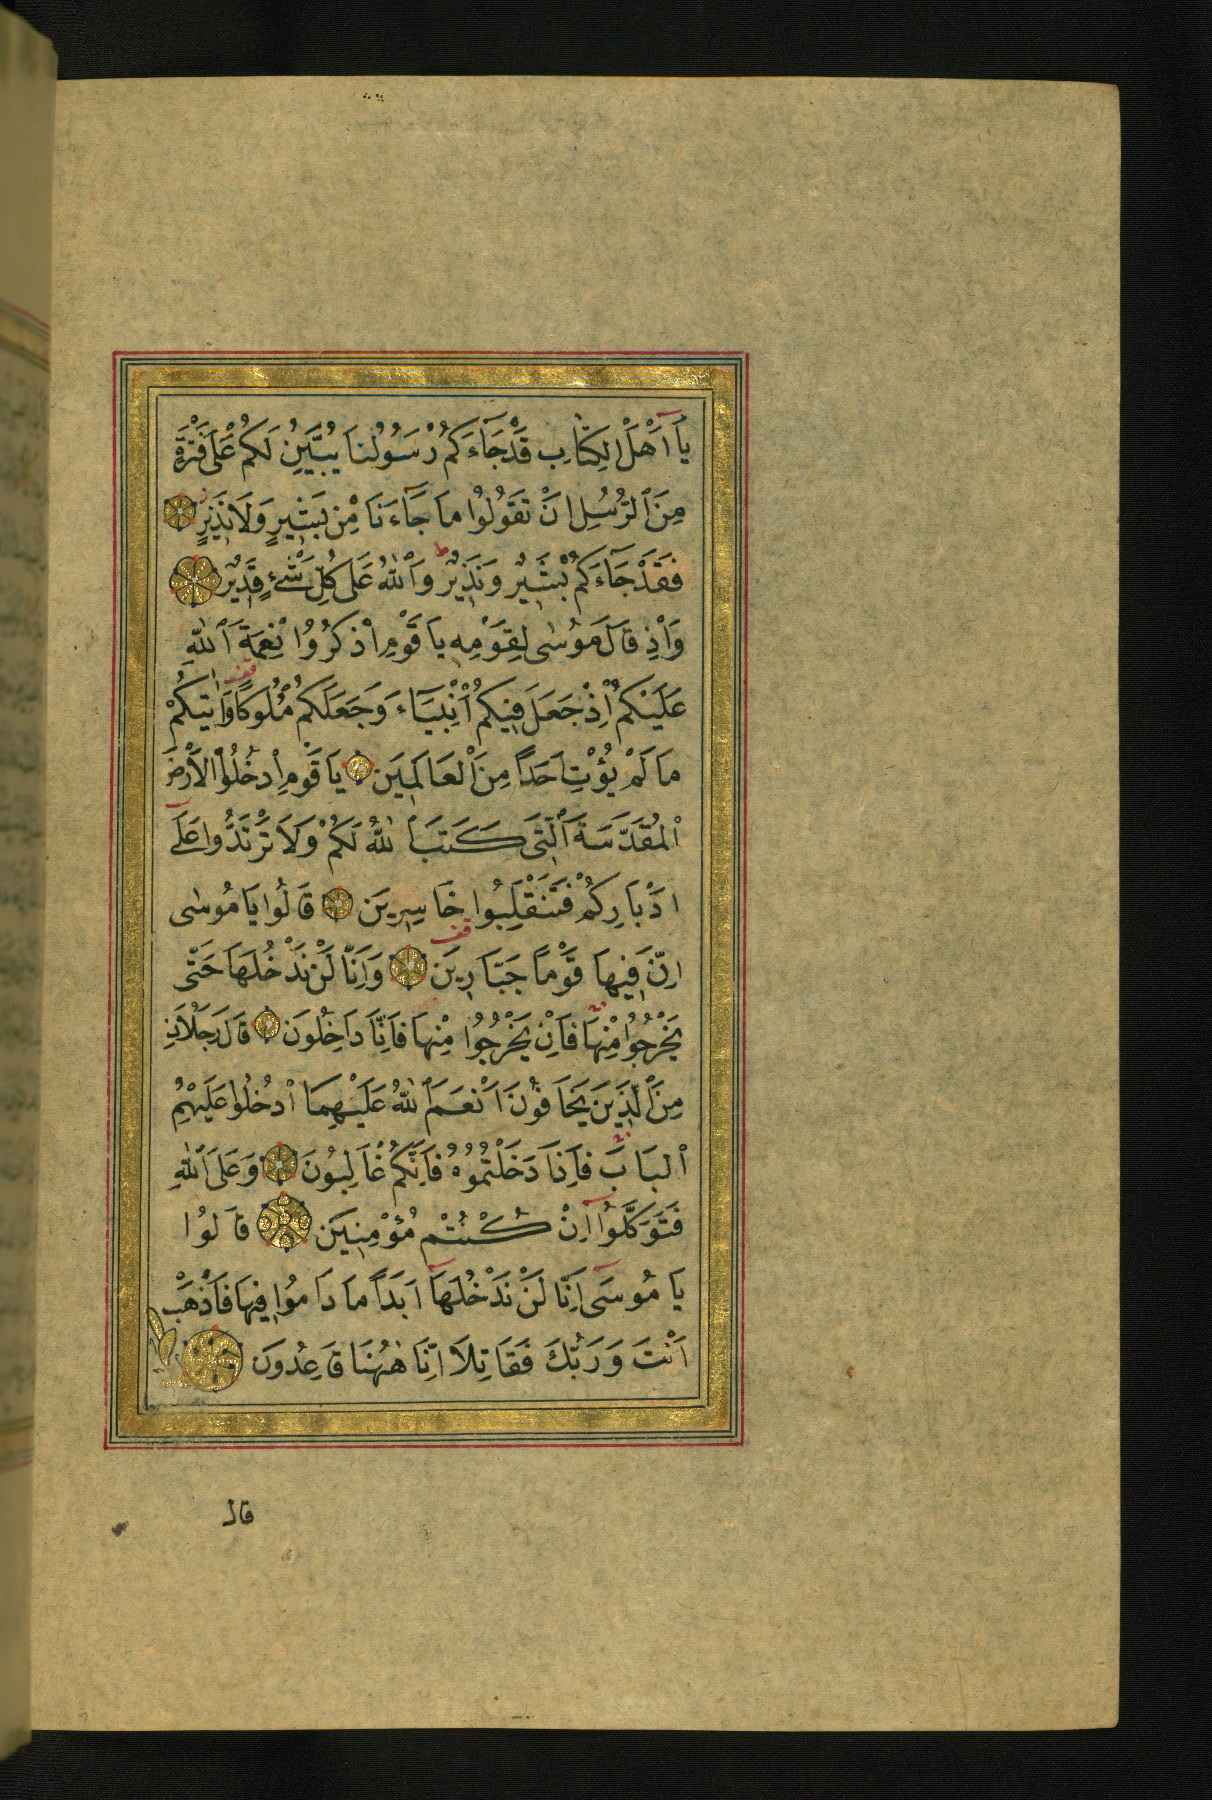 يَا اَهْلَ الْكِتَابِ قَدْ جَاءَكُمْ رَسُولُنَا يُبَيِّنُ لَكُمْ عَلٰى فَتْرَةٍ
مِنَ الرُّسُلِ اَنْ تَقُولُوا مَا جَاءَنَا مِنْ بَشِيرٍ وَلَا نَذِيرٍ
فَقَدْ جَاءَكُمْ بَشِيرٌ وَنَذِيرٌ وَاللّٰهُ عَلٰى كُلِّ شَيْءٍ قَدِيرٌ
وَاِذْ قَالَ مُوسٰى لِقَوْمِهِ يَا قَوْمِ اذْكُرُوا نِعْمَةَ اللّٰهِ
عَلَيْكُمْ اِذْ جَعَلَ فِيكُمْ اَنْبِيَاءَ وَجَعَلَكُمْ مُلُوكًا وَاٰتٰيكُمْ
مَا لَمْ يُؤْتِ اَحَدًا مِنَ الْعَالَمِينَ يَا قَوْمِ ادْخُلُوا الْاَرْضَ
الْمُقَدَّسَةَ الَّتِي كَتَبَ اللّٰهُ لَكُمْ وَلَا تَرْتَدُّوا عَلٰى
اَدْبَارِكُمْ فَتَنْقَلِبُوا خَاسِرِينَ قَالُوا يَا مُوسٰى
اِنَّ فِيهَا قَوْمًا جَبَّارِينَ وَاِنَّا لَنْ نَدْخُلَهَا حَتّٰى
يَخْرُجُوا مِنْهَا فَاِنْ يَخْرُجُوا مِنْهَا فَاِنَّا دَاخِلُونَ قَالَ رَجُلَانِ
مِنَ الَّذِينَ يَخَافُونَ اَنْعَمَ اللّٰهُ عَلَيْهِمَا ادْخُلُوا عَلَيْهِمُ
الْبَابَ فَاِذَا دَخَلْتُمُوهُ فَاِنَّكُمْ غَالِبُونَ وَعَلَى اللّٰهِ
فَتَوَكَّلُوا اِنْ كُنْتُمْ مُؤْمِنِينَ قَالُوا
يَا مُوسٰى اِنَّا لَنْ نَدْخُلَهَا اَبَدًا مَا دَامُوا فِيهَا فَاذْهَبْ
اَنْتَ وَرَبُّكَ فَقَاتِلَا اِنَّا هٰهُنَا قَاعِدُونَ
قال